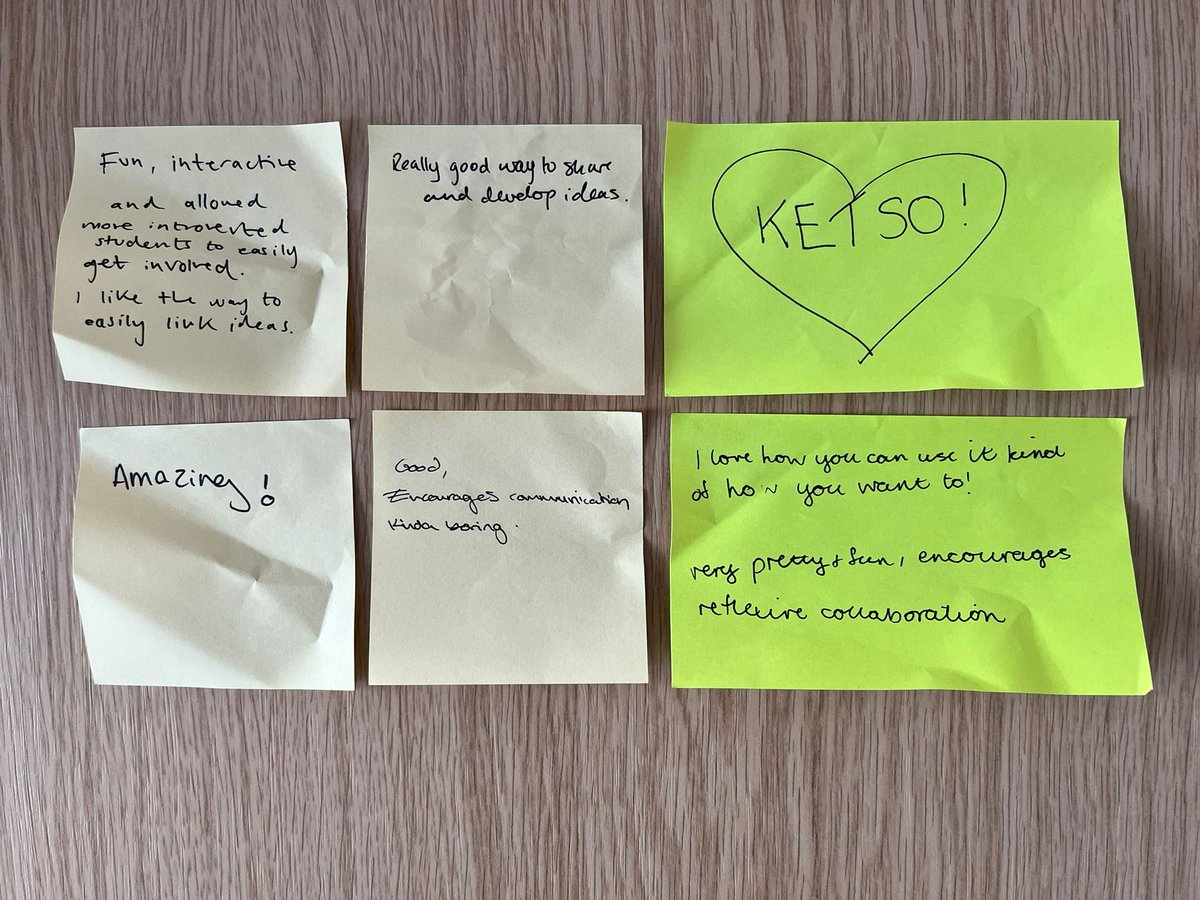 Fun, interactive
and allowed
more introverted
students to easily
get involved.
I like the way to
easily link ideas.
Really good way to share
and develop ideas.
KETSO!
Amazing!
Good,
Encourages communication
Kinda boring.
I love how you can use it kind
of how you want to!
very pretty & fun, encourages
reflexive collaboration